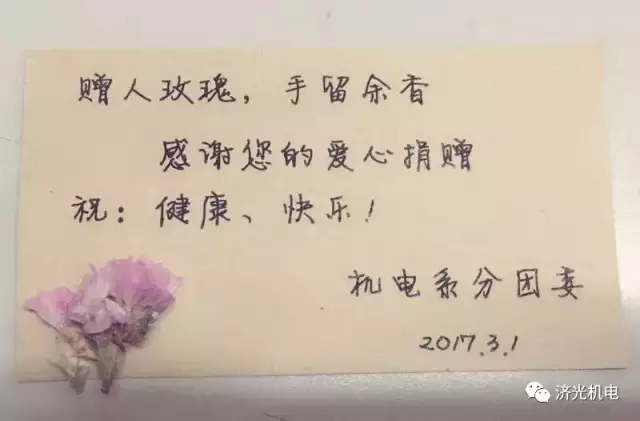 赠人玫瑰，手留余香
感谢您的爱心捐赠
祝：健康、快乐！
机电系分团委
2017.3.1
济光机电